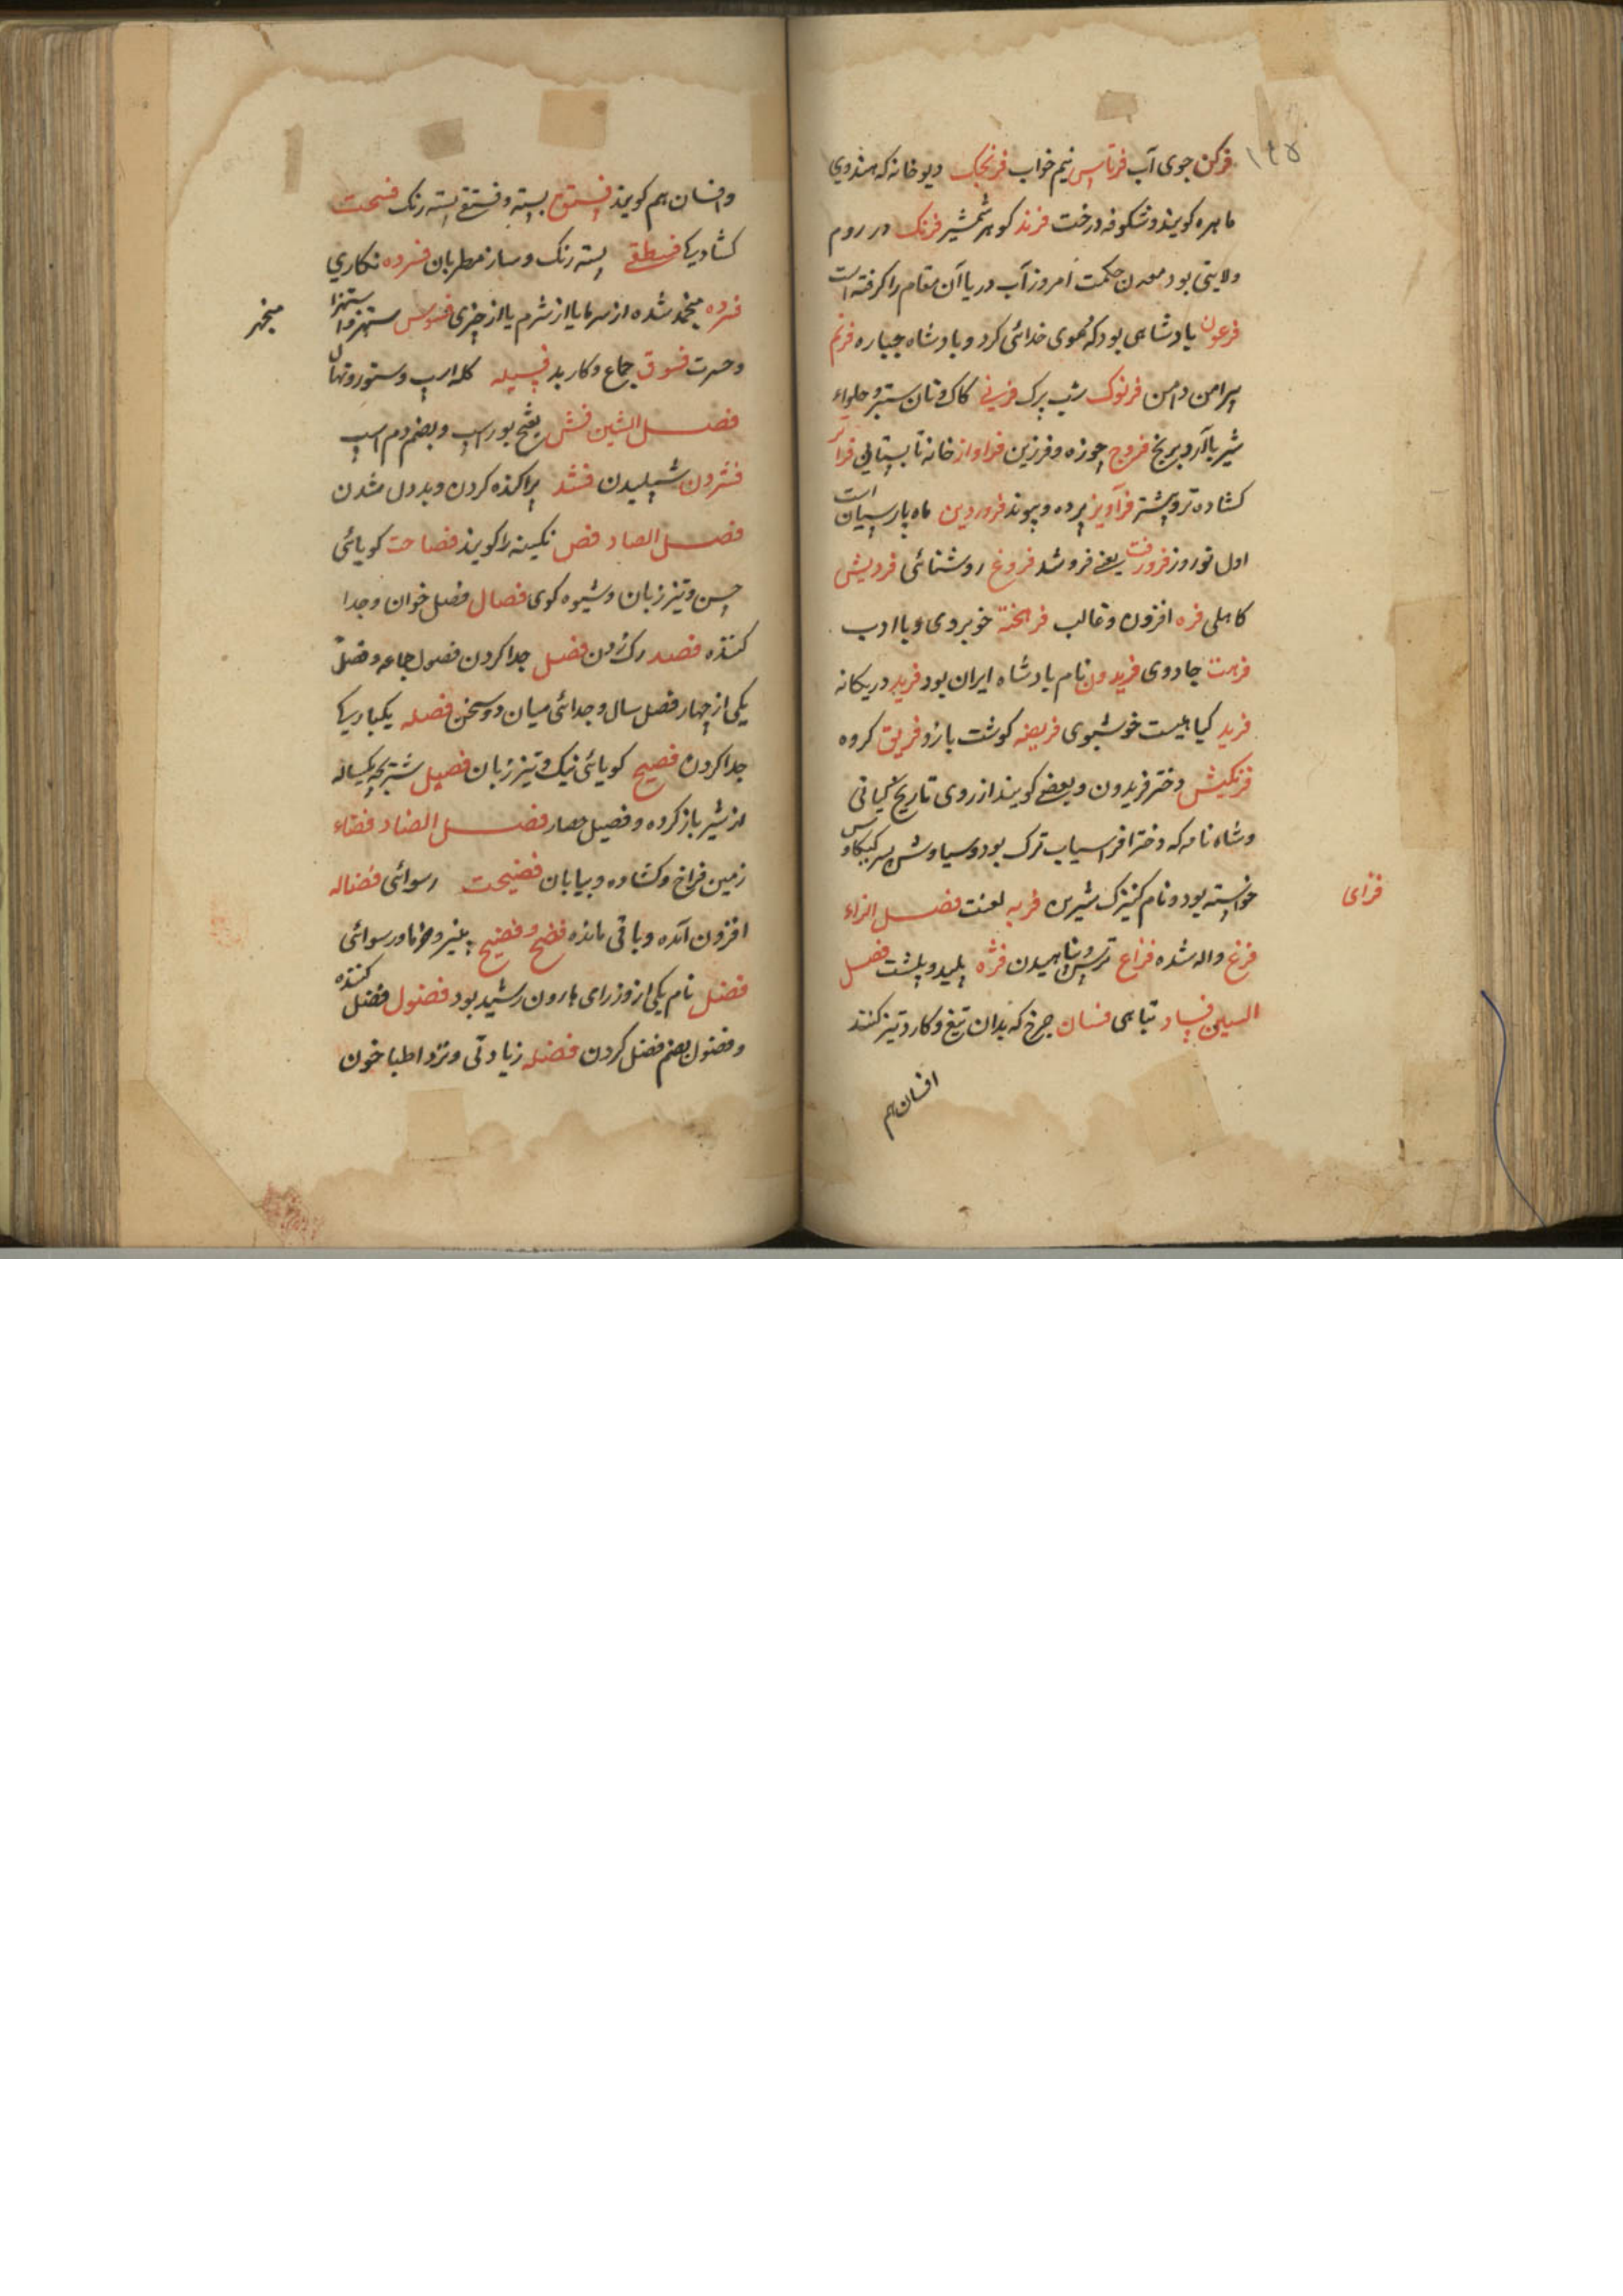 ۱۴۵
فرکن جوی آب فرناس نیم خواب فرنجک دیو خانه که هندوی
ماهره کویند و شکوفه درخت فرند کوهر شمشیر فرنک در روم
ولایتی بود معدن حکمت امروز آب دریا آن مقام را کرفته است
فرعون بادشاهی بود که دعوی خدائی کرد و بادشاه جباره فرنم
پیرامن دامن فرنوک شب پرک فرنی کاک و نان ستبر و حلواء
شیر با آرد برنج فروج جوزه و فرزین فراواز خانه تابستانی فراتر
کشاده تر و پیشتر فرآویز پرده و پیوند فروردین ماه پارسیان است
اول نوروز فرورفت یعنی فروشد فروغ روشنائی فرویش
کاهلی فره افزون و غالب فرهخته خوبروی و با ادب
فرهت جادوی فریدون نام بادشاه ایران بود فرید در یکانه
فرید کیاهیست خوشبوی فریصه کوشت بازو فریق کروه
فرنکیش دختر فریدون و بعضی کویند از روی تاریخ کیانی
وشاه نامه که دختر افراسیاب ترک بود و سیاوش پسر کیکاوس
خواسته بود و نام کنیزک شیرین فریه لعنت فصل الزاء
فزای
فزغ واله شده فزاع ترس و پناهیدن فژه پلید و پلشت فصل
السین فساد تباهی فسان چرخ که بدان تیغ و کارد تیز کنند
افسان هم
و افسان هم کویند فستق پسته و فستقی پسته رنک فسحت
کشادیکی فسطقی پسته رنک و ساز مطربان فسرده نکاری
فسرده منجمد شده از سرما یا از شرم یا از چیزی فسوس ستهزوا ستهزا
منجر
و حسرت فسوق جماع و کار بد فسیله کله اسب و ستوروتهال
فصل الشین فش بفتح بور اسب و بضم دم اسب
فشردن شپیلیدن فشد پراکنده کردن و بددل شدن
فصل الصاد فص نکینه را کویند فصاحت کویائی
حسن و تیز زبان و شیوه کوی فصال فصل خوان و جدا
کننده فصد رک زدن فصل جدا کردن فصول جماعه و فصل
یکی از چهار فصل سال و جدائی میان دو سخن فصله یکباریکی
جدا کردن فصیح کویائی نیک و تیز زبان فصیل شتربچه یکساله
از شیر باز کرده و فصیل حصار فصل الضاد فضاء
زمین فراخ و کشاده و بیابان فضیحت رسوائی فضاله
افزون آمده و باقی مانده فضح و فضیح پنیر و خرما و رسوائی
فضل نام یکی از وزرای هارون رشید بود فضول فضل کننده
و فضول بضم فضل کردن فضله زیادتی و نزد اطبا خون